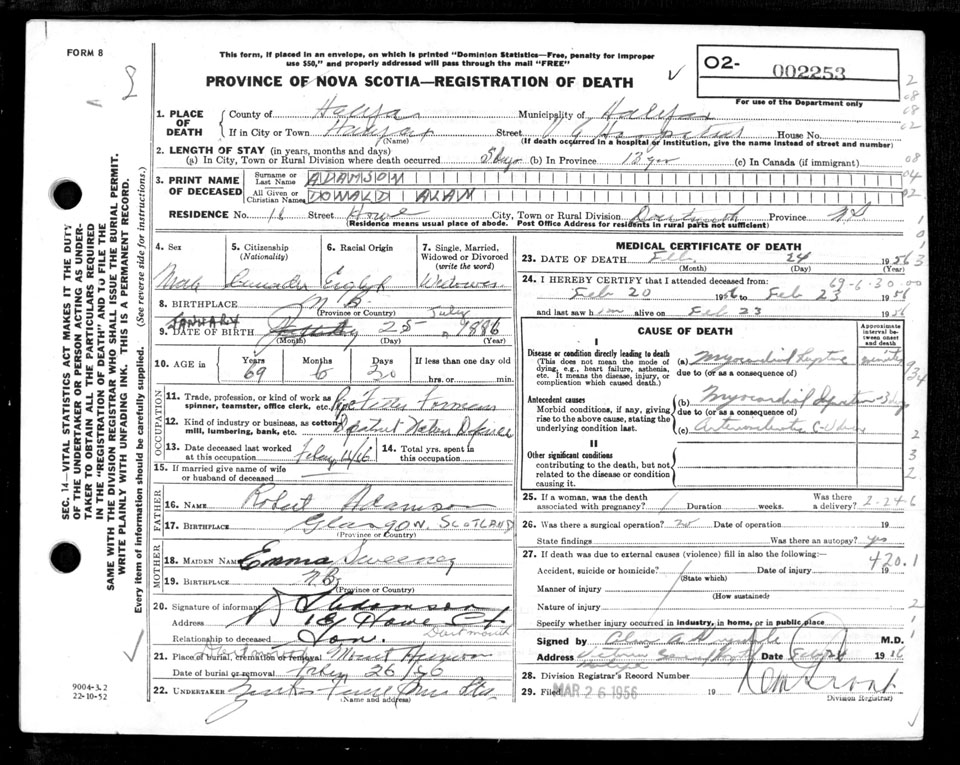 FORM 8
This form, if placed in an envelope, on which is printed "Dominion Statistics—Free, penalty for improper
use $50," and properly addressed will pass through the mail "FREE"
PROVINCE OF NOVA SCOTIA—REGISTRATION OF DEATH
O2- 002253
For use of the Department only
1. PLACE OF DEATH
County of Halifax Municipality of Halifax
If in City or Town Halifax Street V G Hospital House No.
(Name) (If death occurred in a hospital or institution, give the name instead of street and number)
2. LENGTH OF STAY (in years, months and days)
(a) In City, Town or Rural Division where death occurred 5 days (b) In Province 13 yrs (c) In Canada (if immigrant)
3. PRINT NAME OF DECEASED
Surname or Last Name ADAMSON
All Given or Christian Names DONALD ALAN
RESIDENCE No. 16 Street Howe City, Town or Rural Division Dartmouth Province N S
(Residence means usual place of abode. Post Office Address for residents in rural parts not sufficient)
4. Sex
Male
5. Citizenship
(Nationality)
Canadian
6. Racial Origin
English
7. Single, Married,
Widowed or Divorced
(write the word)
Widower
8. BIRTHPLACE N B
(Province or Country)
9. DATE OF BIRTH JANUARY 25 July 1886
(Month) (Day) (Year)
10. AGE in
Years 69
Months 6
Days 30
If less than one day old
hrs. or min.
OCCUPATION
11. Trade, profession, or kind of work as
spinner, teamster, office clerk, etc. Pipe Fitter Foreman
12. Kind of industry or business, as cotton
mill, lumbering, bank, etc. Defence
13. Date deceased last worked
at this occupation
14. Total yrs. spent in
this occupation
15. If married give name of wife
or husband of deceased
FATHER
16. NAME Robert Adamson
17. BIRTHPLACE GLASGOW, SCOTLAND
(Province or Country)
MOTHER
18. MAIDEN NAME Emma Sweeney
19. BIRTHPLACE N.B.
(Province or Country)
20. Signature of informant Adamson
Address 16 Howe St
Dartmouth
Relationship to deceased Son.
21. Place of burial, cremation or removal Dartmouth Mount Hermon
Date of burial or removal Feby 26/56
22. UNDERTAKER
(Name and Address)
MEDICAL CERTIFICATE OF DEATH
23. DATE OF DEATH Feb 24 1956
(Month) (Day) (Year)
24. I HEREBY CERTIFY that I attended deceased from:
69-6-30-00
Feb 20 1956 to Feb 23 1956
and last saw him alive on Feb 23 1956
CAUSE OF DEATH
Approximate interval between onset and death
I
Disease or condition directly leading to death
(This does not mean the mode of
dying, e.g., heart failure, asthenia,
etc. It means the disease, injury, or
complication which caused death.)
(a) Myocardial Rupture
due to (or as a consequence of)
Antecedent causes
Morbid conditions, if any, giving
rise to the above cause, stating the
underlying condition last.
(b) Myocardial
due to (or as a consequence of)
(c)
II
Other significant conditions
contributing to the death, but not
related to the disease or condition
causing it.
25. If a woman, was the death
associated with pregnancy? Duration weeks.
Was there
a delivery?
2-24-6
26. Was there a surgical operation? no Date of operation 19
State findings Was there an autopsy? yes
27. If death was due to external causes (violence) fill in also the following:—
420.1
Accident, suicide or homicide? Date of injury 19
(State which)
Manner of injury
(How sustained)
Nature of injury
Specify whether injury occurred in industry, in home, or in public place
Signed by M.D.
Address Date Feb 24 1956
28. Division Registrar's Record Number
29. Filed MAR 26 1956 19
Division Registrar)
SEC. 14—VITAL STATISTICS ACT MAKES IT THE DUTY
OF THE UNDERTAKER OR PERSON ACTING AS UNDER-
TAKER TO OBTAIN ALL THE PARTICULARS REQUIRED
IN THE "REGISTRATION OF DEATH" AND TO FILE THE
SAME WITH THE DIVISION REGISTRAR WHO SHALL ISSUE THE BURIAL PERMIT.
WRITE PLAINLY WITH UNFADING INK. THIS IS A PERMANENT RECORD.
Every item of information should be carefully supplied. (See reverse side for instructions.)
9004-3.2
22-10-52